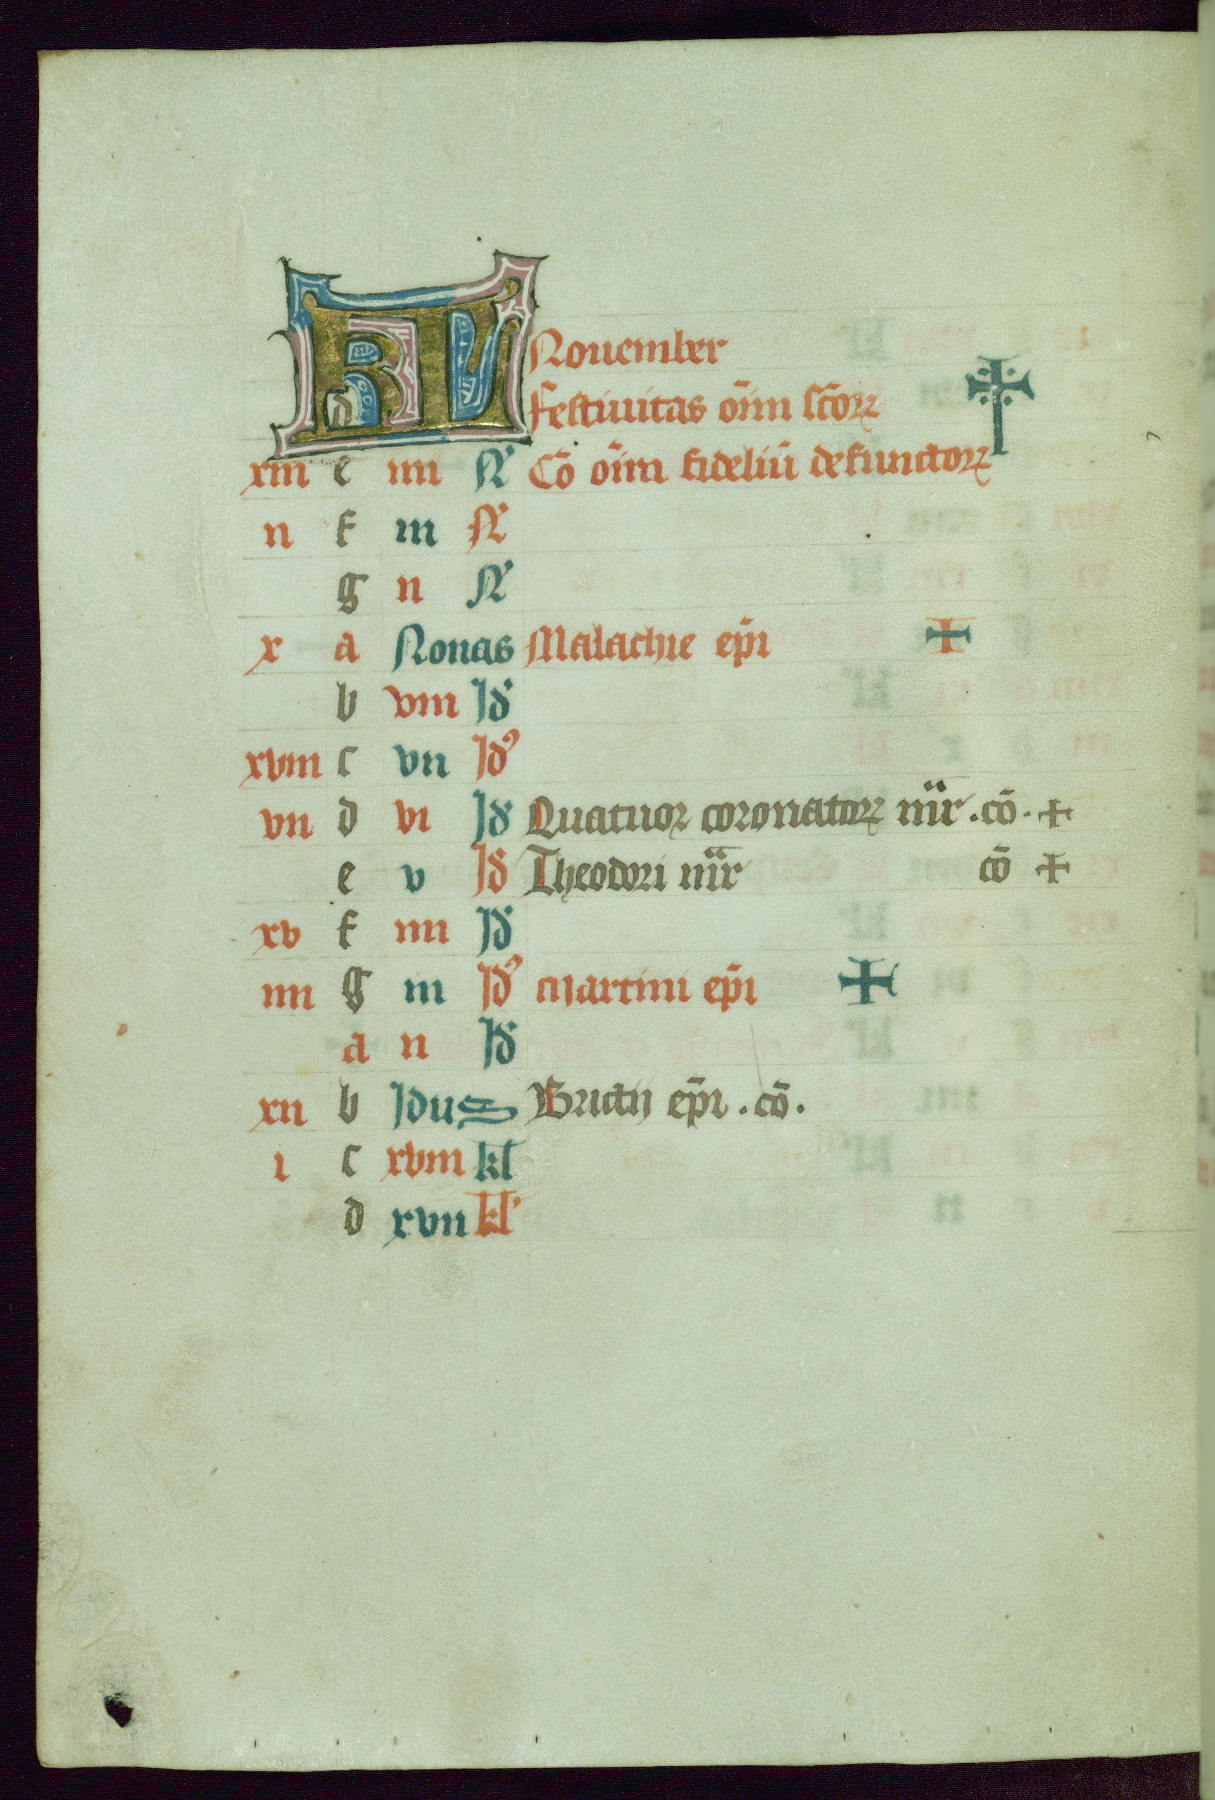 KL November
d Festiuitas oīm scōꝝ
xiii e iiii N' Cō oīm fideliū defunctoꝝ
ii f iii N'
g ii N'
x a Nonas Malachie ep̄i
b viii Id'
xviii c vii Id'
vii d vi Id' Quatuor coronatoꝝ mr̄. cō.
e v Id' Theodori mr̄ cō
xv f iiii Id'
iiii g iii Id' Martini ep̄i
a ii Id'
xii b Idus Brictij ep̄i. cō.
i c xviii kl
d xvii kl'